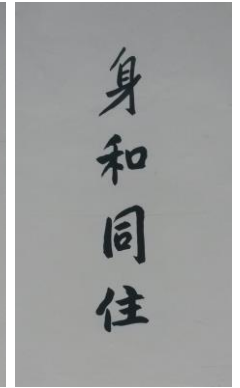 身和同住